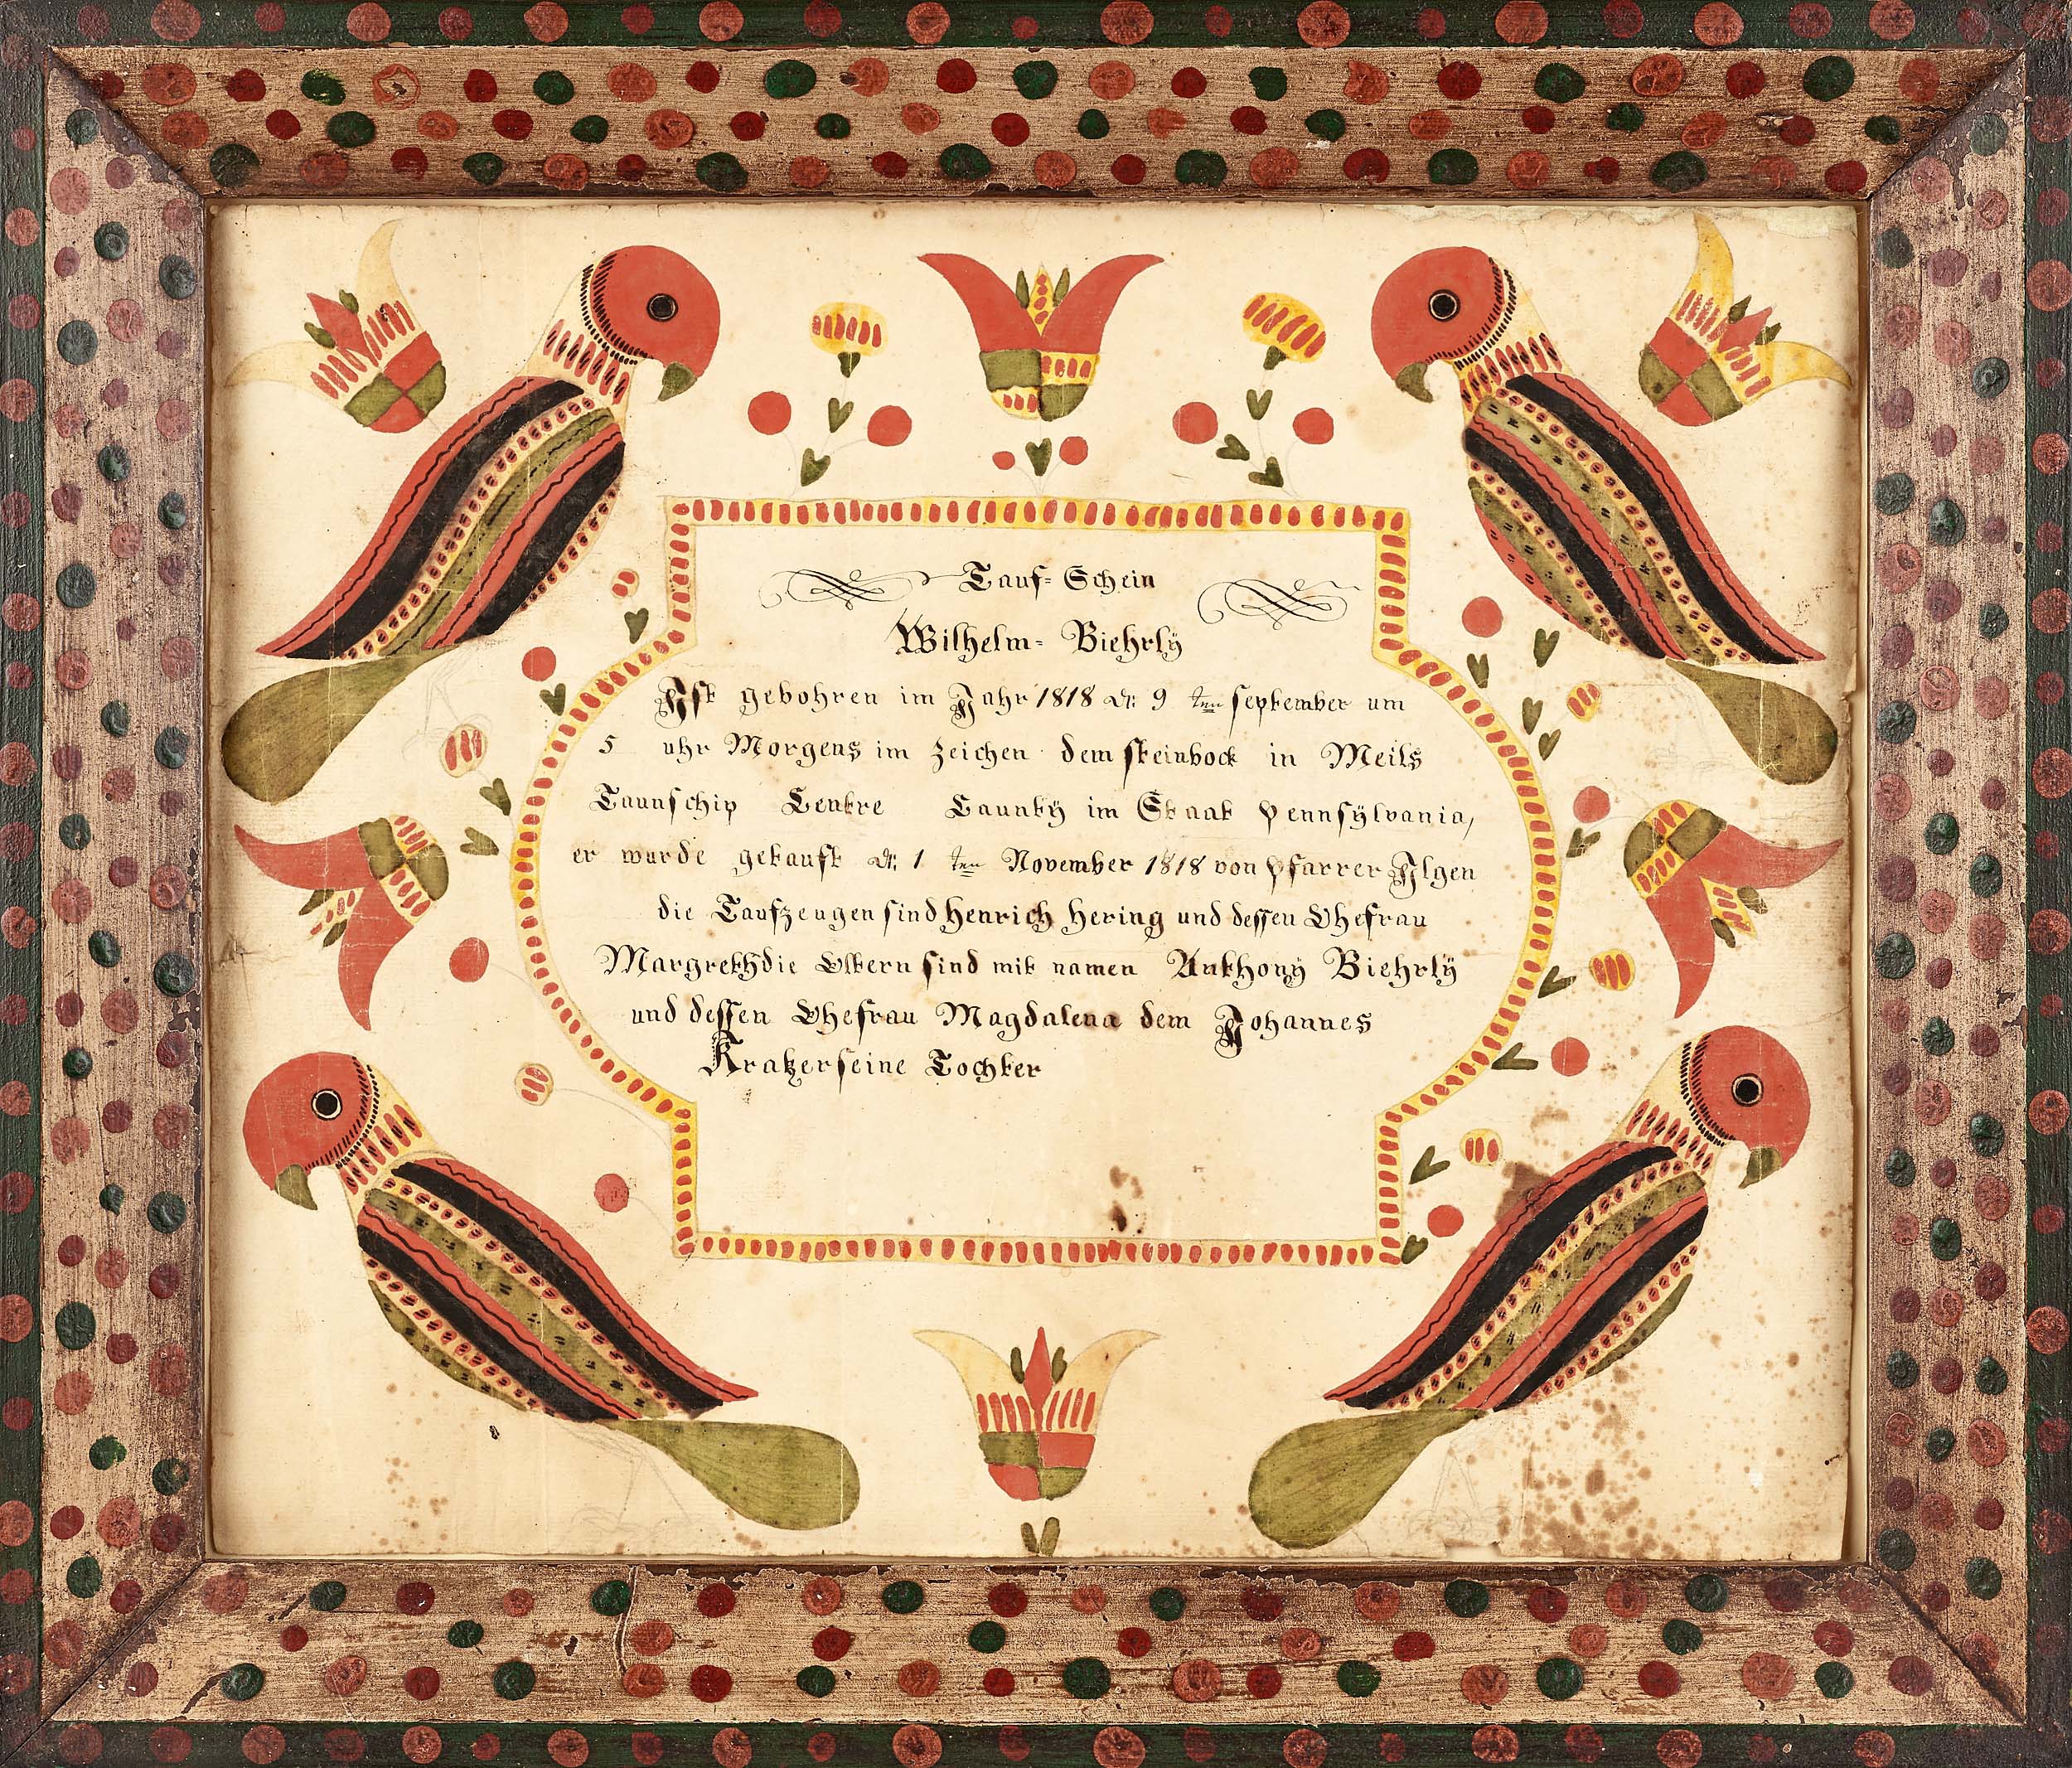 Tauf-Schein
Wilhelm- Biehrlÿ
Ist gebohren im Jahr 1818 d: 9 ten september um
5 uhr Morgens im zeichen dem steinbock in Meils
Taunschip Centre Caunty im Staat Pennsÿlvania,
er wurde getauft d: 1 ten November 1818 von pfarrer Ilgen
die Taufzeugen sind Henrich Hering und dessen Ehefrau
Margreth die Eltern sind mit namen Anthonÿ Biehrlÿ
und dessen Ehefrau Magdalena dem Johannes
Kratzer seine Tochter